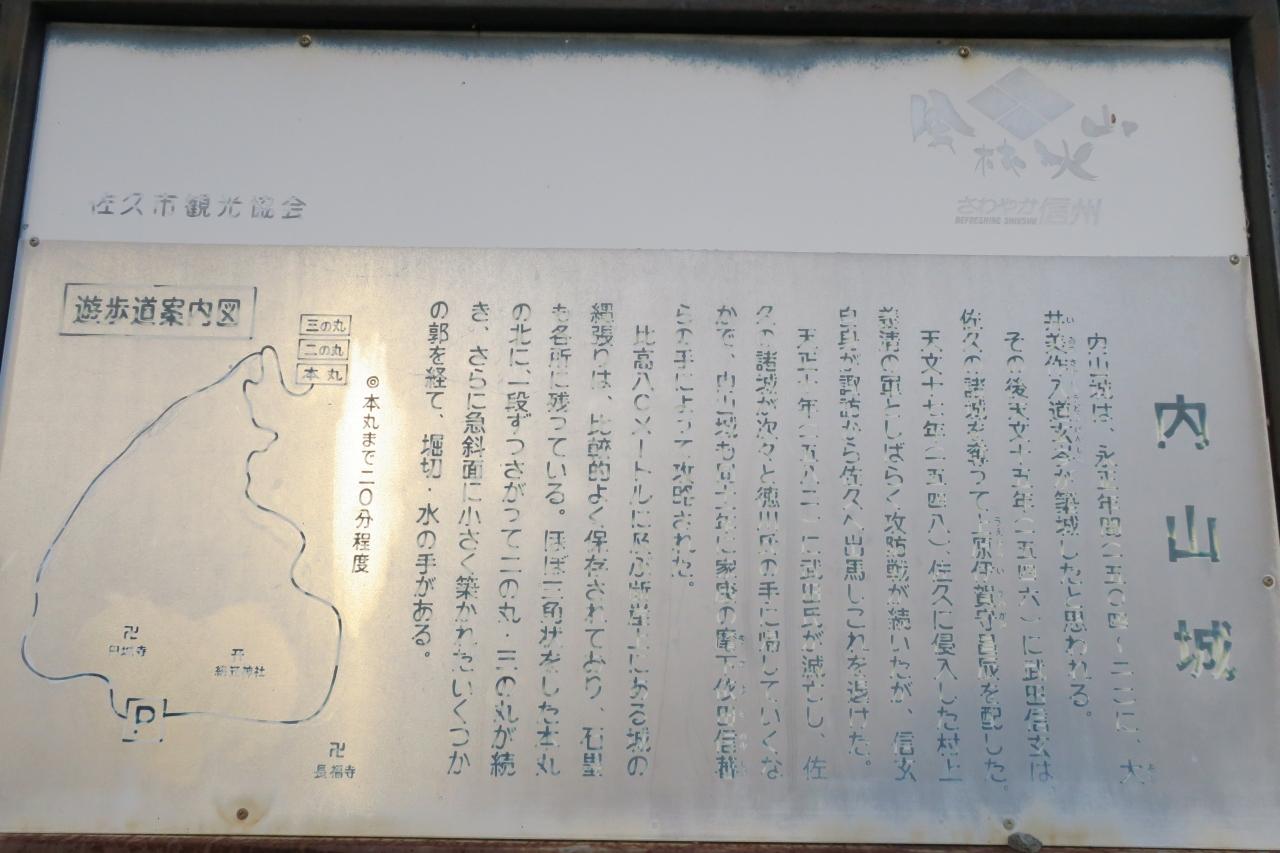 風林火山
さわやか信州
REFRESHING SHINSHU
佐久市観光協会
内山城
内山城は、永正年間(一五〇四〜二一)に、大
井美作入道玄岑が築城したと思われる。
その後天文十五年(一五四六)に武田信玄は
佐久の諸城を奪って上原伊賀守昌辰を配した。
天文十七年(一五四八)、佐久に侵入した村上
義清の軍としばらく攻防戦が続いたが、信玄
自身が諏訪から佐久へ出馬しこれを退けた。
天正十年(一五八二)に武田氏が滅亡し、佐
久の諸城が次々と徳川氏の手に帰していくな
かで、内山城も同十一年に家康の麾下依田信蕃
らの手によって攻略された。
比高八〇メートルに及ぶ断崖上にある城の
縄張りは、比較的よく保存されており、石塁
も各所に残っている。ほぼ三角状をした本丸
の北に、一段ずつさがって二の丸・三の丸が続
き、さらに急斜面に小さく築かれたいくつか
の郭を経て、堀切・水の手がある。
◎本丸まで二〇分程度
遊歩道案内図
三の丸
二の丸
本丸
卍
円城寺
神社
P
卍
長福寺